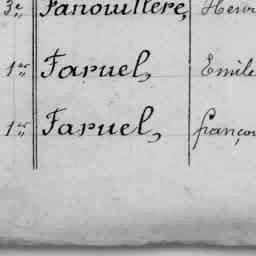 3e Fanouillère, Henri
1er Faruel, Emile
1er Faruel, françoi